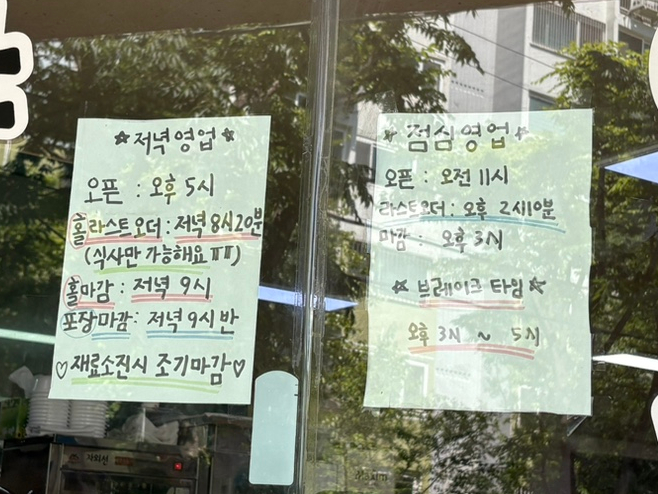 ☆저녁영업☆
오픈 : 오후 5시
홀 라스트오더 : 저녁 8시20분
(식사만 가능해요 ㅠㅠ)
홀마감 : 저녁 9시
포장/마감 : 저녁 9시 반
♡재료소진시 조기마감♡
☆점심영업☆
오픈 : 오전 11시
라스트오더 : 오후 2시10분
마감 : 오후 3시
☆브레이크 타임☆
오후 3시 ~ 5시
자외선